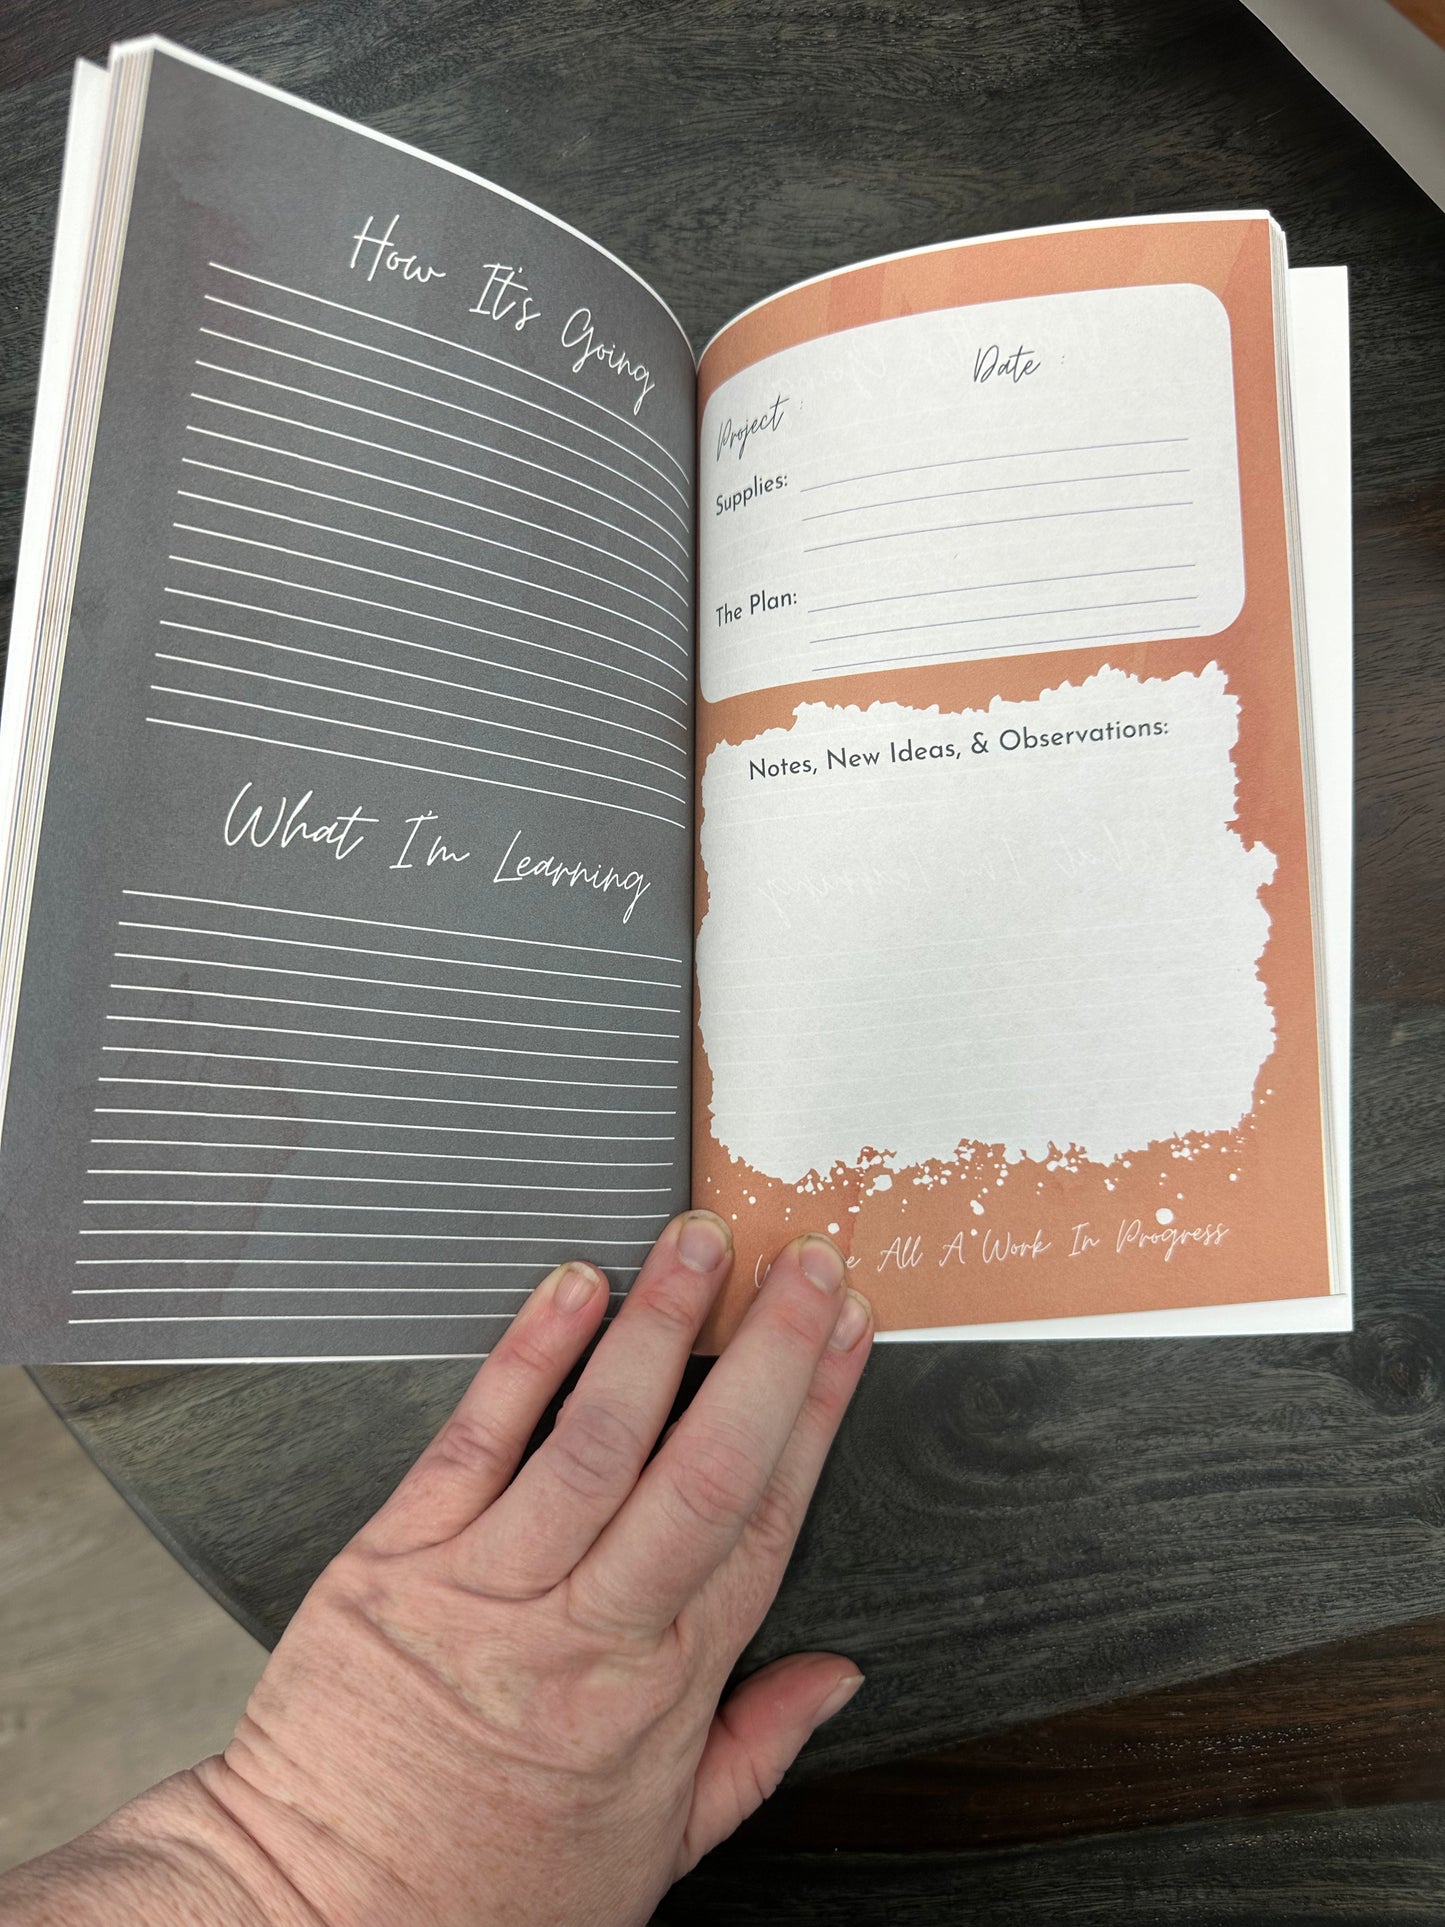 How It's Going
What I'm Learning
Project :
Date :
Supplies:
The Plan:
Notes, New Ideas, & Observations:
All A Work In Progress